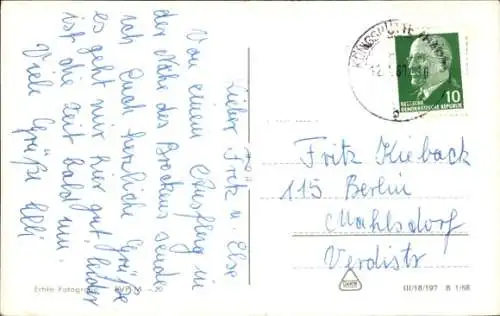 Lieber Fritz u. Else
Von einem Ausflug in
der Nähe des Brockens sende
ich Euch herzliche Grüße
es geht mir hier gut, leider
ist die Zeit bald um.
Viele Grüße
KÖNIGSHÜTTE
10
DEUTSCHE
DEMOKRATISCHE REPUBLIK
Fritz Kieback
115 Berlin
Mahlsdorf
Verdistr
Echte Fotogra
III/18/197 B 1/68